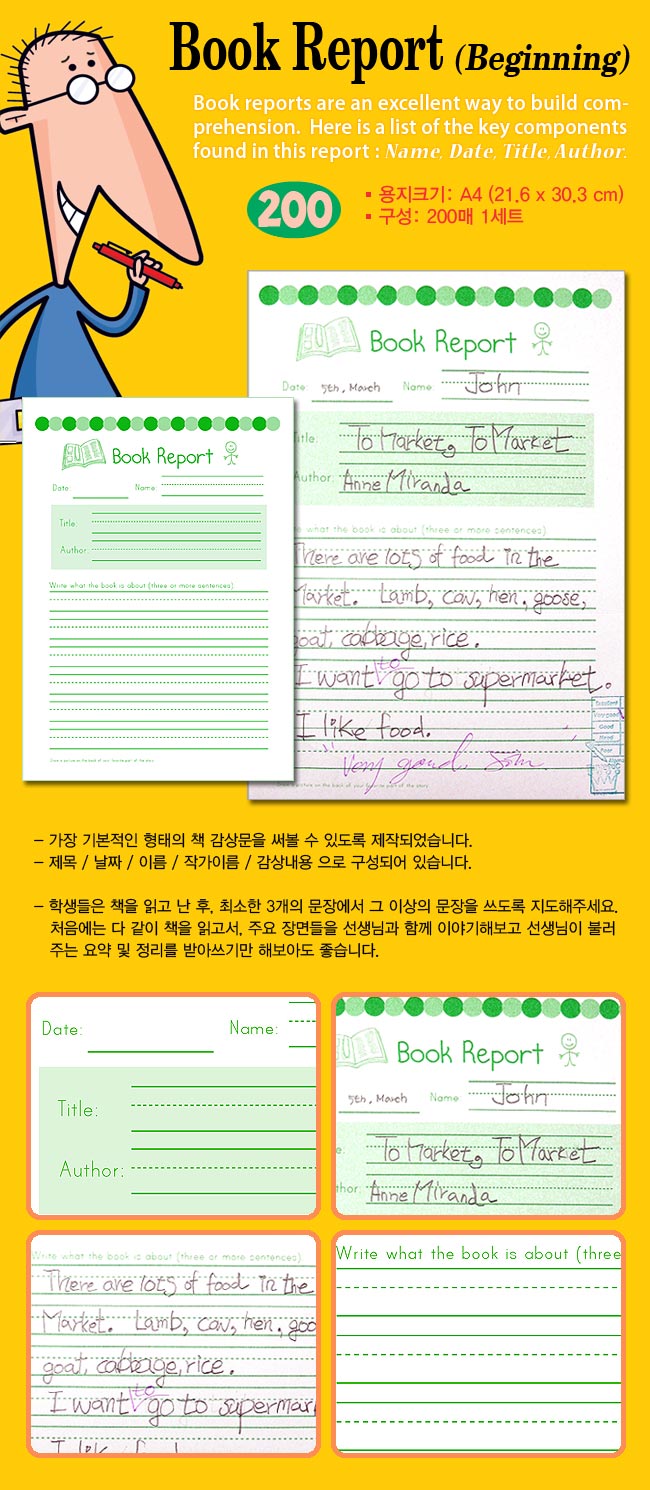 Book Report (Beginning)
Book reports are an excellent way to build com-
prehension. Here is a list of the key components
found in this report : Name, Date, Title, Author.
200
▪ 용지크기: A4 (21.6 x 30.3 cm)
▪ 구성: 200매 1세트
Book Report
Date: 5th, March Name: John
Title: To Market, To Market
Author: Anne Miranda
e what the book is about (three or more sentences)
There are lots of food in the
Market. Lamb, cow, hen, goose,
goat, cabbage, rice.
I want to go to supermarket.
I like food.
Very good. John
Excellent
Very good
Good
Poor
picture on the back of your favorite part of the story.
Book Report
Date: Name:
Title:
Author:
Write what the book is about (three or more sentences)
Draw a picture on the back of your favorite part of the story.
– 가장 기본적인 형태의 책 감상문을 써볼 수 있도록 제작되었습니다.
– 제목 / 날짜 / 이름 / 작가이름 / 감상내용 으로 구성되어 있습니다.
– 학생들은 책을 읽고 난 후, 최소한 3개의 문장에서 그 이상의 문장을 쓰도록 지도해주세요.
처음에는 다 같이 책을 읽고서, 주요 장면들을 선생님과 함께 이야기해보고 선생님이 불러
주는 요약 및 정리를 받아쓰기만 해보아도 좋습니다.
Date: Name:
Title:
Author:
Book Report
5th, March Name: John
e: To Market, To Market
thor: Anne Miranda
Write what the book is about (three or more sentences)
There are lots of food in the
Market. Lamb, cow, hen, goo
goat, cabbage, rice.
I want to go to supermar
I like food.
Write what the book is about (three